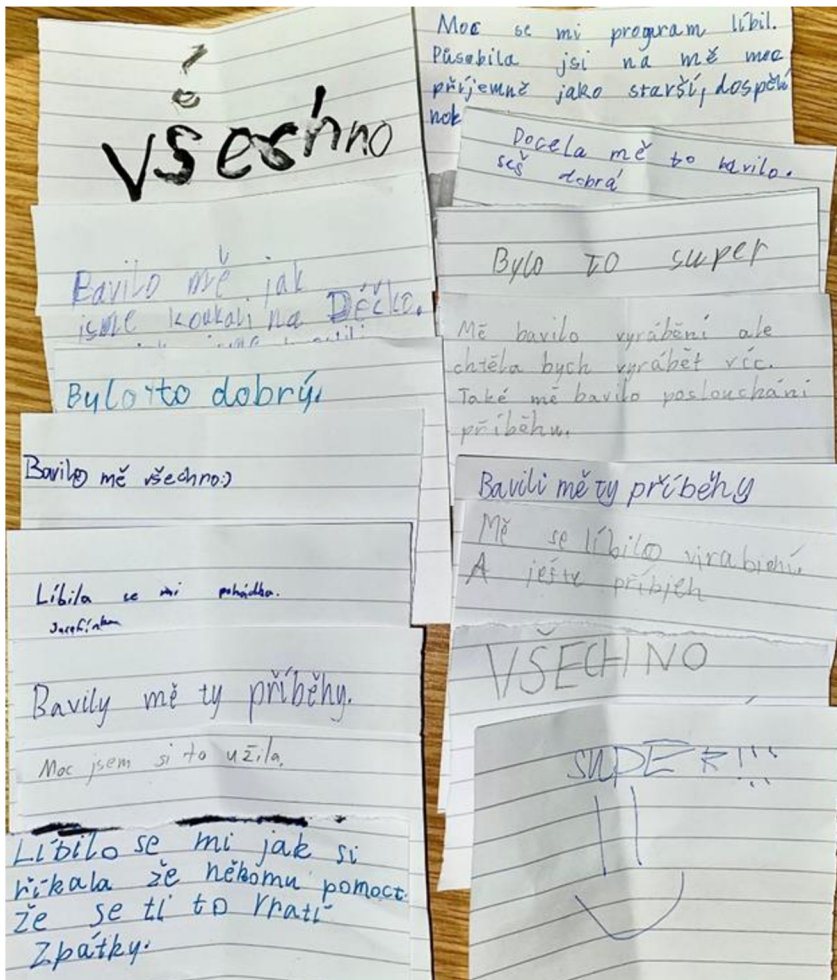 všechno
Bavilo mě jak
jsme koukali na Déčko.
Bylo to dobrý.
Bavilo mě všechno:)
Líbila se mi pohádka.
Bavily mě ty příběhy.
Moc jsem si to užila.
Líbilo se mi jak si
říkala že někomu pomoct
že se ti to vratí
zpátky.
Moc se mi program líbil.
Působila jsi na mě moc
příjemně jako starší, dospělí
Docela mě to bavilo.
seš dobrá
Bylo to super
Mě bavilo vyrábění ale
chtěla bych vyrábět víc.
Také mě bavilo poslouchání
příběhu.
Bavili mě ty příběhy
Mě se líbilo virabjení
A ješte příbjeh
VŠECHNO
SUPER!!!